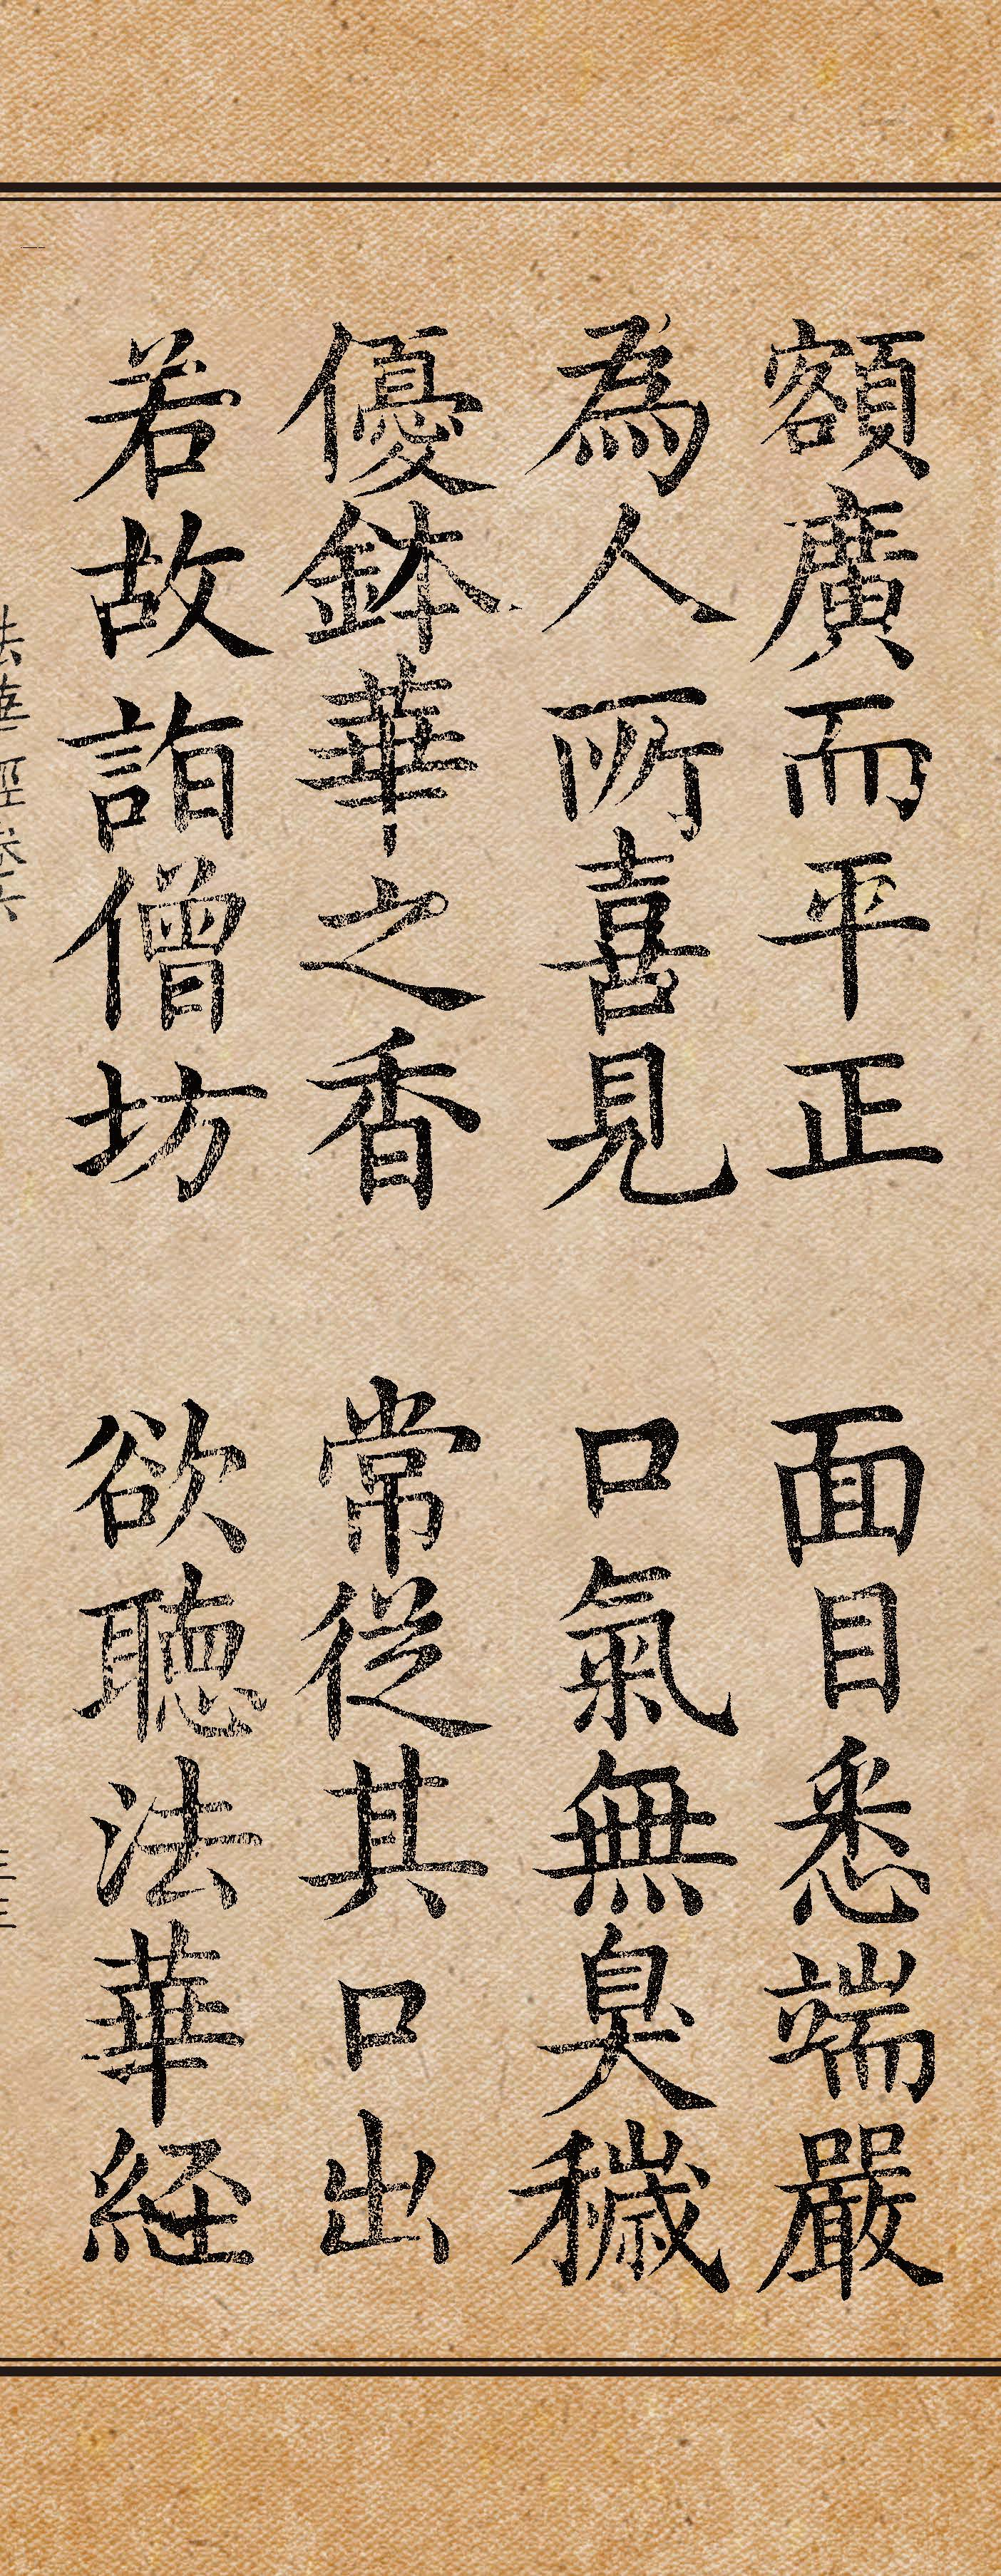 額廣而平正 面目悉端嚴
為人所喜見 口氣無臭穢
優鉢華之香 常從其口出
若故詣僧坊 欲聽法華経
法華経巻六